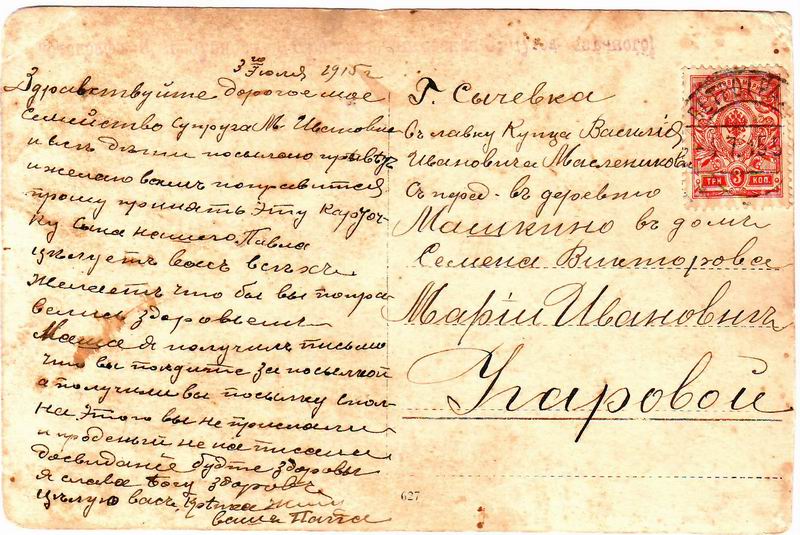 3го Июля 1915 г
Здравствуйте дорогое мое
Семейство Супруга М. Ивановна
и всъ дъти посылаю привът
и желаю вам поправится
прошу принять Эту карточ
ку сына нашего Павла
цълуетъ васъ всъхъ
желаетъ что бы вы попра
вились здоровьемъ
Маша я получилъ письмо
что вы поидите за посылкой
а получили вы посылку
на Этого вы не прислали
и проденьги не написали
досвидание будте здоровы
я слава Богу здоровъ
цълую васъ
вашъ Папа
Г. Сычевка
въ лавку Купца Василія
Ивановича Масленикова
съ перед. въ деревню
Машкино въ домъ
Семена Викторова
Маріи Ивановнъ
Угаровой
ТРИ 3 КОП.
627